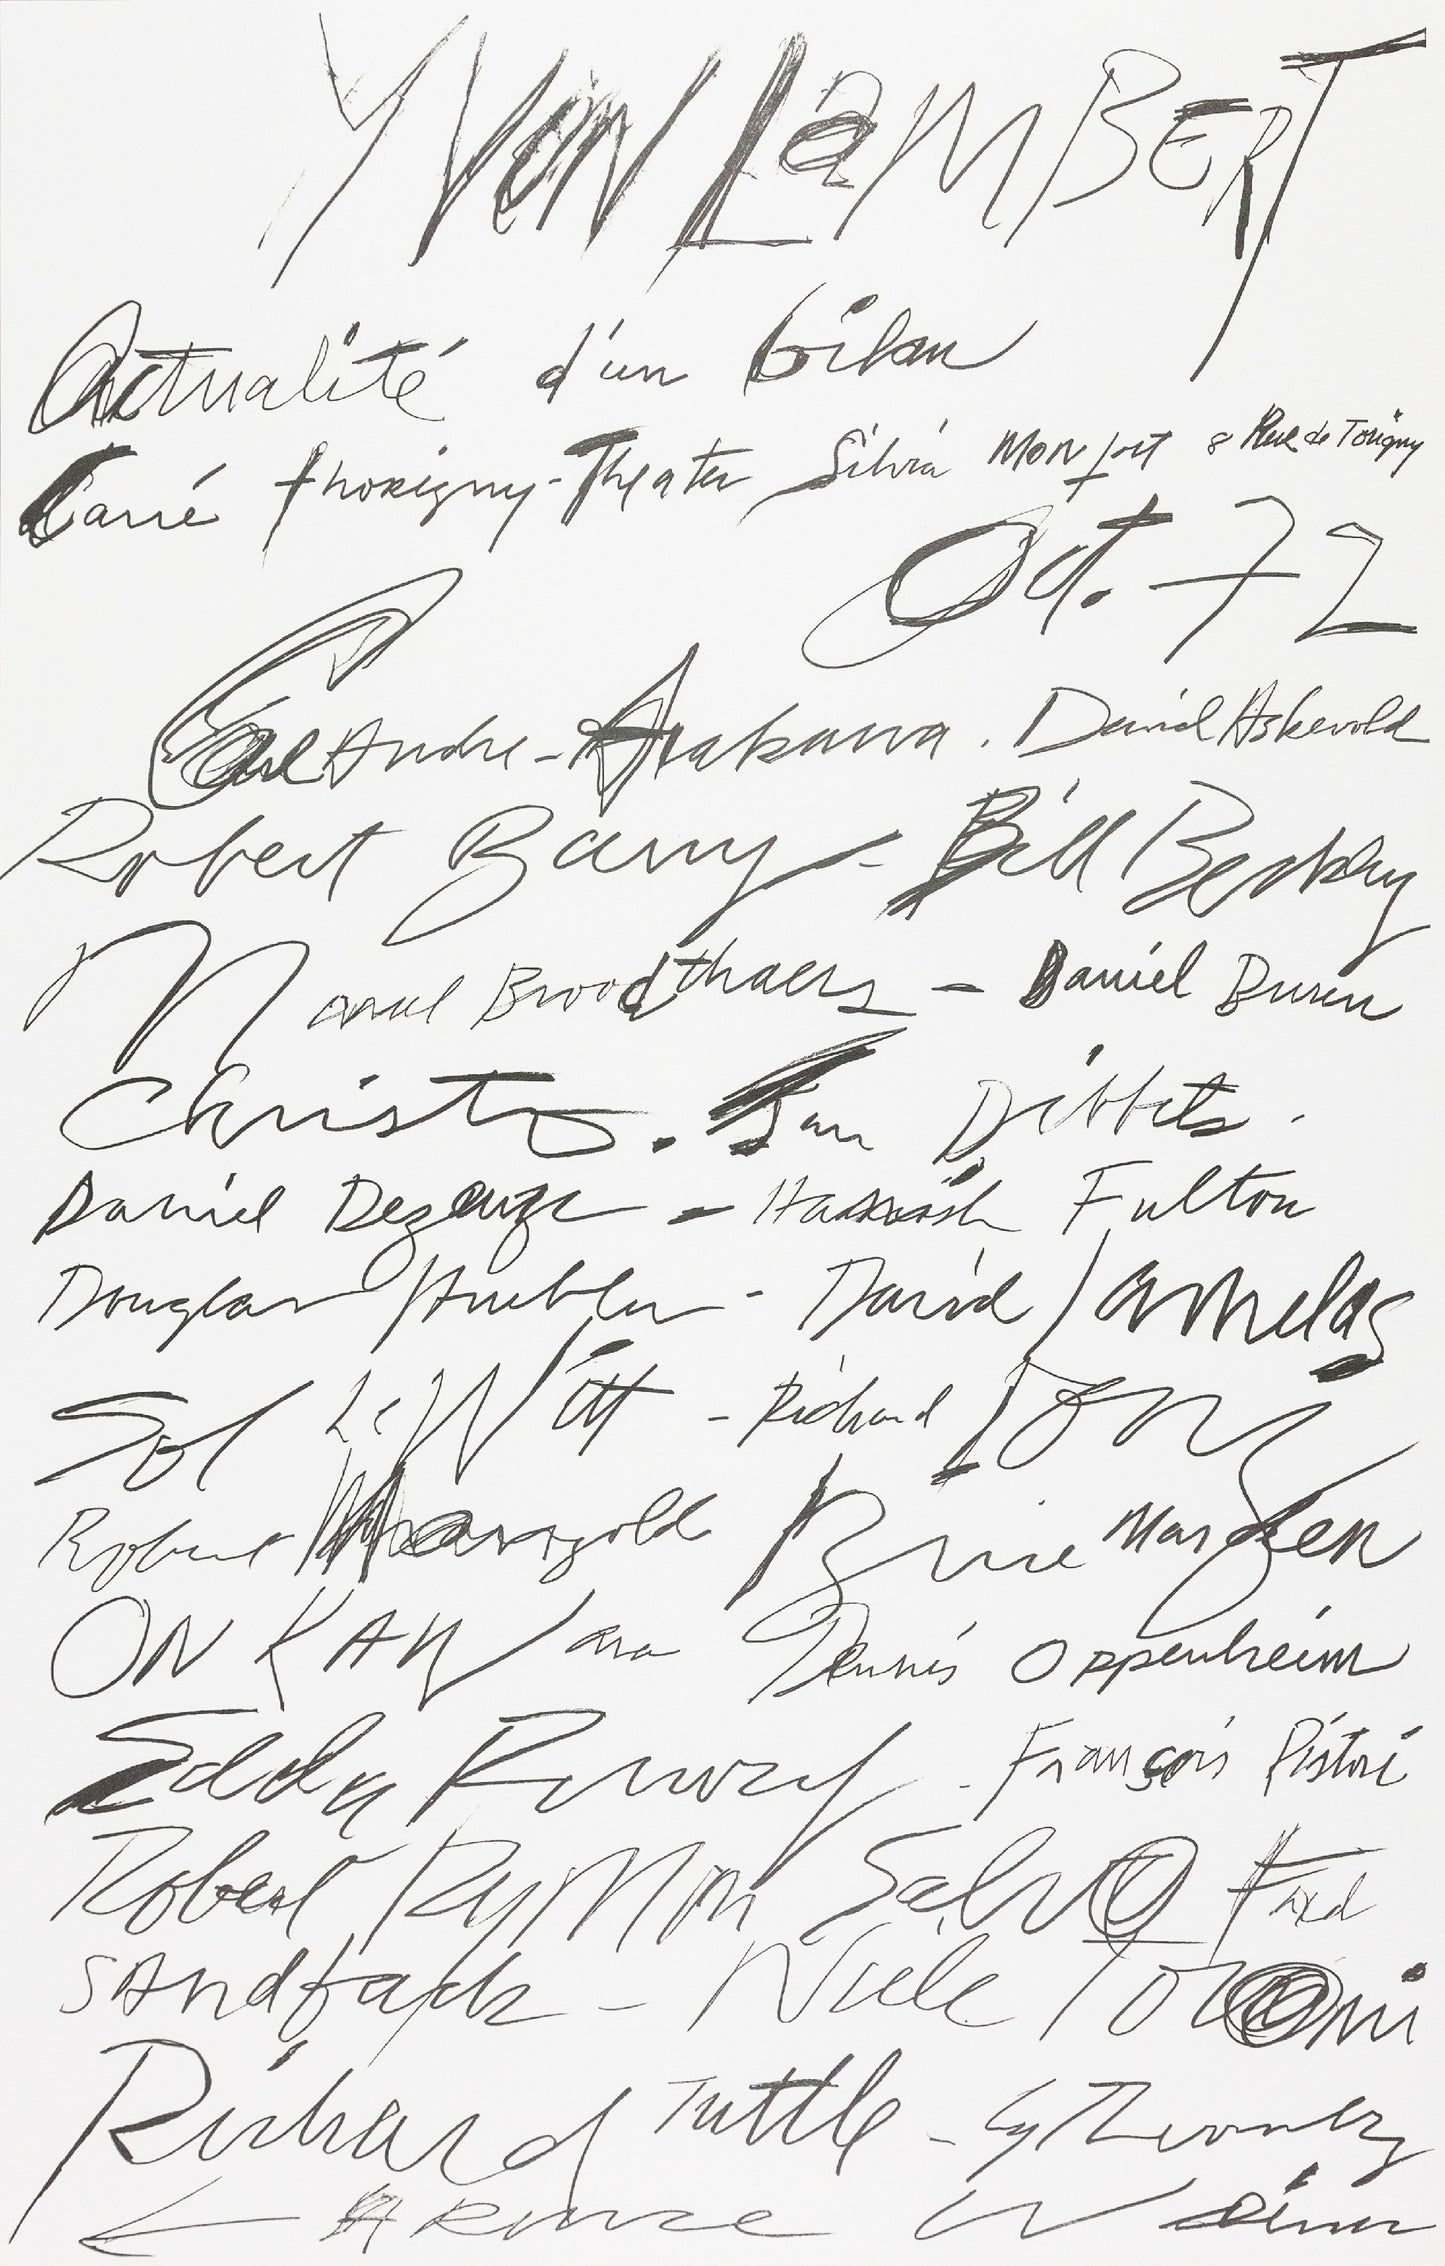 YVON LAMBERT
Actualité d'un bilan
Carré thorigny-Theater Silvia Monfort 8 Rue de Torigny
Oct. 72
Carl Andre - Arakawa. David Askevold
Robert Barry - Bill Beckley
Marcel Broodthaers - Daniel Buren
Christo. Jan Dibbets.
Daniel Dezeuze - Hamish Fulton
Douglas Huebler - David Lamelas
Sol LeWitt - Richard Long
Robert Mangold Brice Marden
ON KAWara Dennis Oppenheim
Edda Renouf - François Ristori
Robert Ryman Salvo Fred
SAndback - Niele Toroni
Richard Tuttle - Cy Twombly
LAwrence Weiner